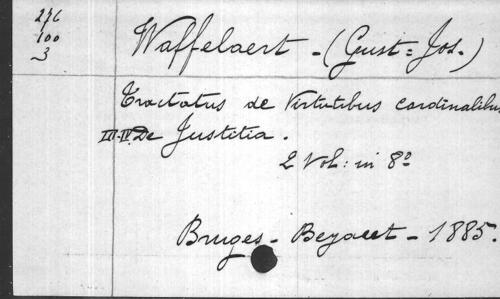 276
100
3
Waffelaert - (Gust = Jos.)
Tractatus de Virtutibus cardinalibus
III-IV. De Justitia.
2 Vol: in 8º
Bruges - Beyaert - 1885.